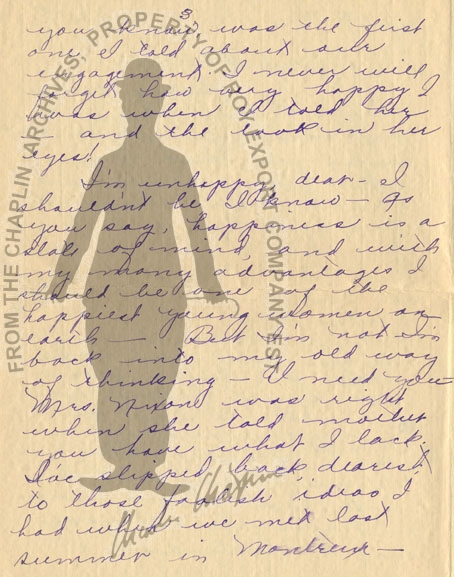 3
you know was the first
one I told about our
engagement. I never will
forget how very happy I
was when I told her
— and the look in her
eyes!
I'm unhappy, dear — I
shouldn't be I know — As
you say, happiness is a
state of mind, and with
my many advantages I
should be one of the
happiest young women on
earth — But I'm not I'm
back into my old way
of thinking — I need you —
Mrs. Nixon was right
when she told mother
you have what I lack.
I've slipped back dearest
to those foolish ideas I
had when we met last
summer in Montreux —
FROM THE CHAPLIN ARCHIVES, PROPERTY OF ROY EXPORT COMPANY EST